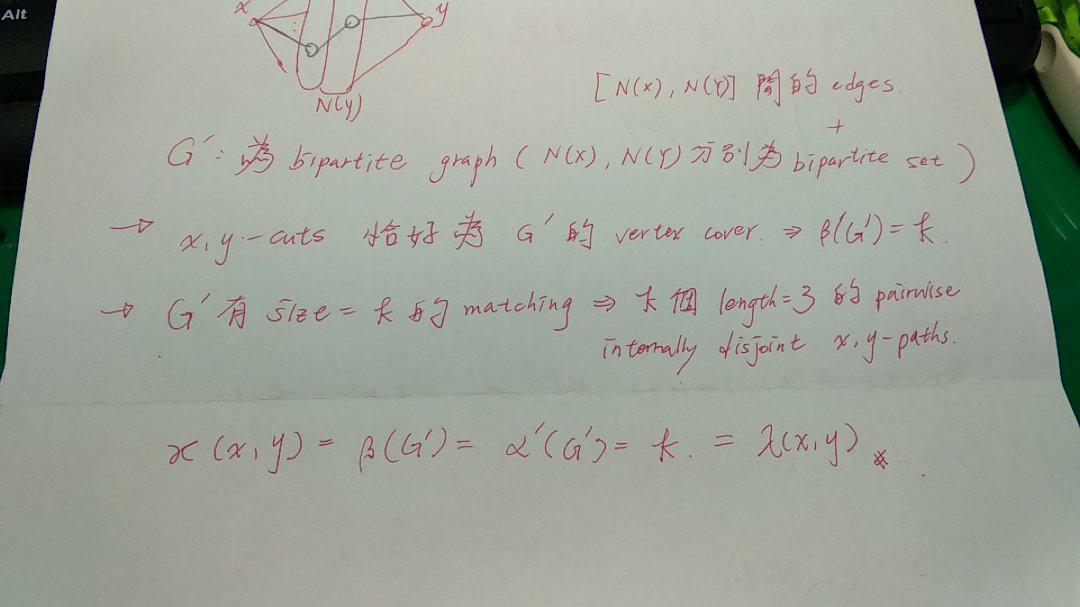 Alt
x
y
N(y)
[N(x), N(Y)] 間的 edges.
+
G': 為 bipartite graph ( N(x), N(Y) 分别為 bipartite set )
→ x,y-cuts 恰好為 G' 的 vertex cover. ⇒ β(G') = k.
→ G' 有 size = k 的 matching ⇒ k 個 length=3 的 pairwise
internally disjoint x, y-paths.
κ(x,y) = β(G') = α'(G') = k. = λ(x,y) *